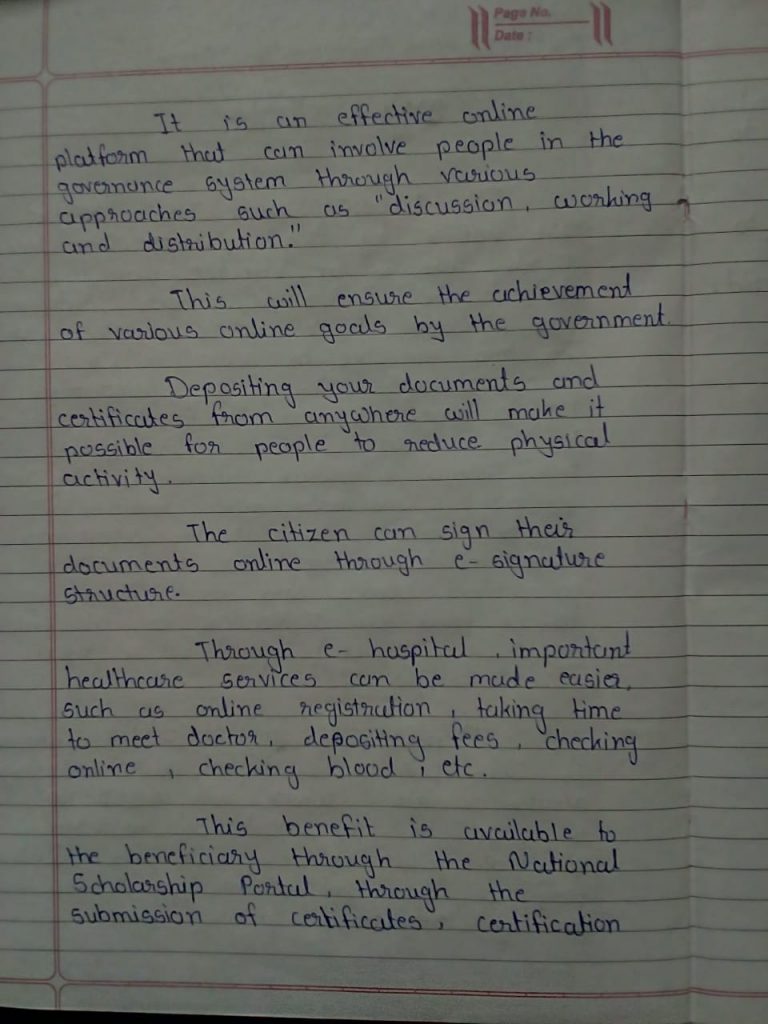 Page No.
Date :
It is an effective online
platform that can involve people in the
governance system through various
approaches such as "discussion, working
and distribution."
This will ensure the achievement
of various online goals by the government.
Depositing your documents and
certificates from anywhere will make it
possible for people to reduce physical
activity.
The citizen can sign their
documents online through e- signature
structure.
Through e- hospital, important
healthcare services can be made easier,
such as online registration, taking time
to meet doctor, depositing fees, checking
online, checking blood, etc.
This benefit is available to
the beneficiary through the National
Scholarship Portal, through the
submission of certificates, certification